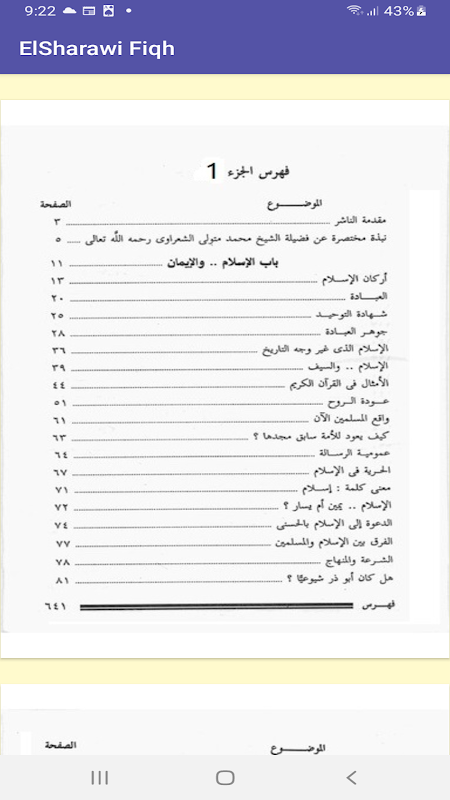 9:22 43%
ElSharawi Fiqh
فهرس الجزء 1
الموضـــــوع الصفحة
مقدمة الناشر ٣
نبذة مختصرة عن فضيلة الشيخ محمد متولى الشعراوى رحمه اللَّه تعالى ٥
باب الإسلام .. والإيمان ١١
أركان الإسـلام ١٣
العبـادة ٢٠
شـهادة التوحيـد ٢٥
جوهـر العبـادة ٢٨
الإسلام الذى غير وجه التاريخ ٣٦
الإسلام .. والسيف ٣٩
الأمثال فى القرآن الكريم ٤٤
عـودة الـروح ٥١
واقع المسلمين الآن ٦١
كيف يعود للأمة سابق مجدها ؟ ٦٣
عمومية الرسـالة ٦٤
الحرية فى الإسلام ٦٧
معنى كلمة : إسـلام ٧١
الإسلام .. يمين أم يسار ؟ ٧٢
الدعوة إلى الإسلام بالحسنى ٧٤
الفرق بين الإسلام والمسلمين ٧٧
الشرعة والمنهاج ٧٨
هل كان أبو ذر شيوعيًّا ؟ ٨١
فهـرس ٦٤١
الموضـــــوع الصفحة